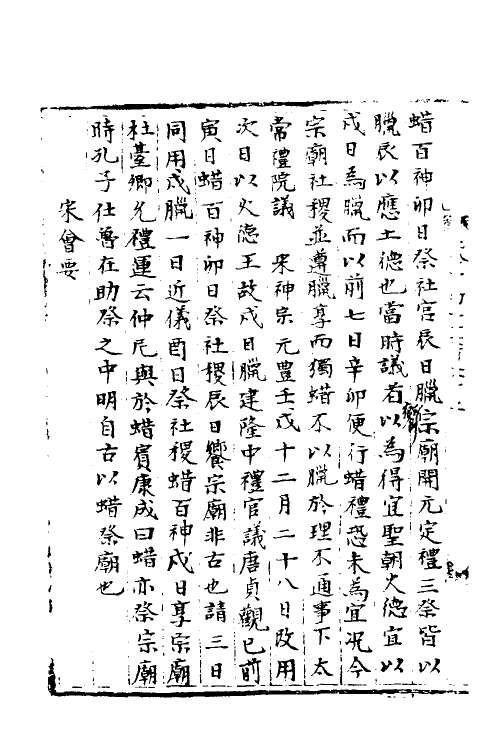 蜡百神卯日祭社宫辰日臘宗廟開元定禮三祭皆以
臘辰以應土德也當時議者以為得宜聖朝火德宜以
戌日為臘而以前七日辛卯便行蜡禮恐未為宜況今
宗廟社稷並遵臘享而獨蜡不以臘於理不通事下太
常禮院議 宋神宗元豊壬戌十二月二十八日改用
次日以火德王故戌日臘建隆中禮官議唐貞觀已前
寅日蜡百神卯日祭社稷辰日饗宗廟非古也請三日
同用戌臘一日近儀酉日祭社稷蜡百神戌日享宗廟
杜臺卿允禮運云仲尼與於蜡賓康成曰蜡亦祭宗廟
時孔子仕魯在助祭之中明自古以蜡祭廟也
宋會要